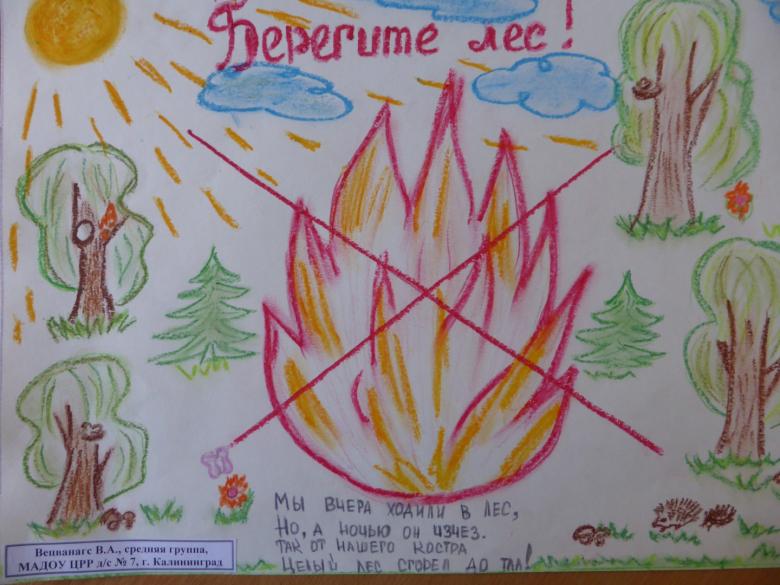 Берегите лес!
Мы вчера ходили в лес,
Но, а ночью он изчез.
Так от нашего костра
Целый лес сгорел до тла!
Вепванагс В.А., средняя группа,
МАДОУ ЦРР д/с № 7, г. Калининград